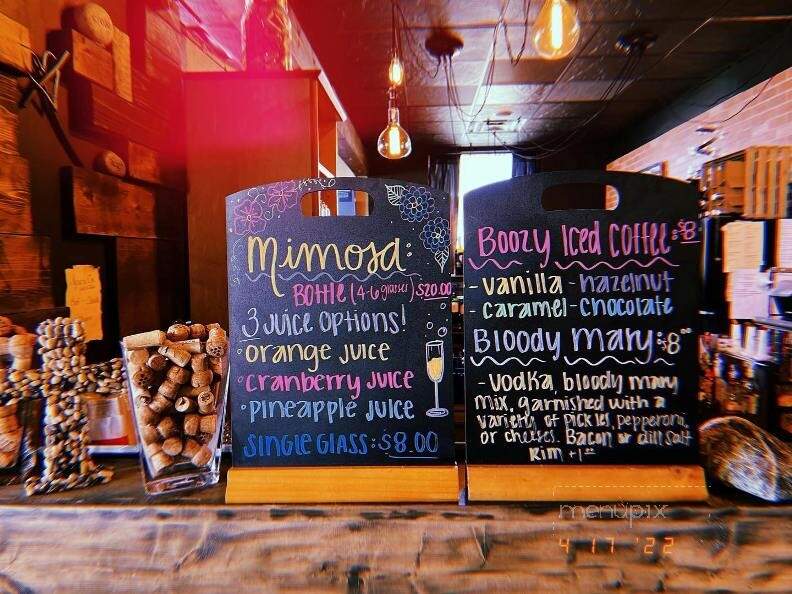 Mimosa:
Bottle (4-6 glasses) $20.00
3 Juice Options!
• Orange Juice
• Cranberry Juice
• Pineapple Juice
Single Glass: $8.00
Boozy Iced Coffee: $8
- vanilla - hazelnut
- caramel - chocolate
Bloody Mary: $8.00
- Vodka, bloody mary
mix, garnished with a
variety of pickles, pepperoni,
or cheeses. Bacon or dill salt
Rim +1.00
menupix
4 17 '22